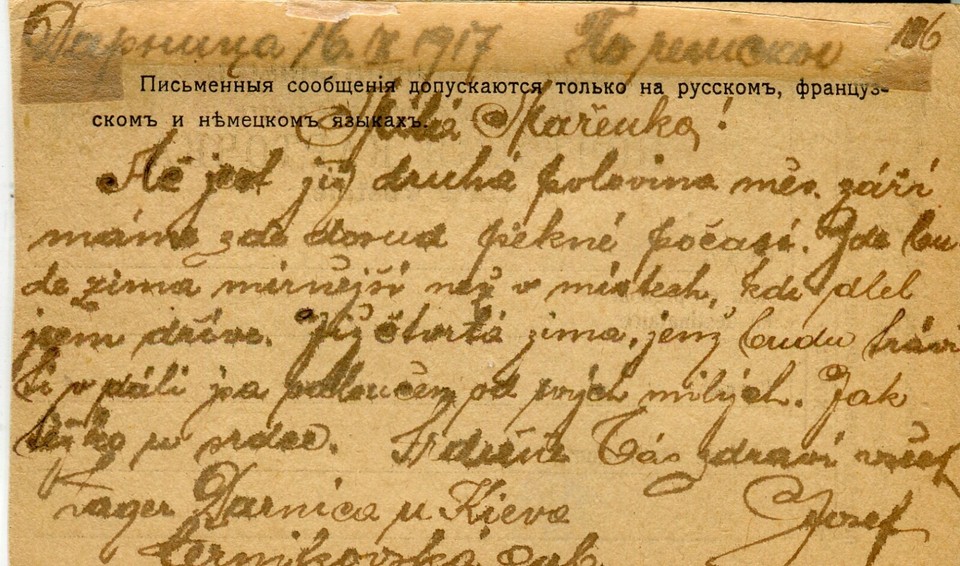 Дарница 16. IX 1917 По чешски 106
Письменныя сообщенія допускаются только на русскомъ, француз-
скомъ и нѣмецкомъ языкахъ.
Milá Mařenko!
Ač jest již druhá polovina měs. září
máme zde dosud pěkné počasí. Zde bu
de zima mírnější než v místech, kde dlel
jsem dříve. Již čtvrtá zima, jenž budu trávi
ti v dáli jsa odloučen od svých milých. Jak
těžko u srdce. Srdečně Vás zdraví
Lager Darnica u Kieva Josef
Černikovská